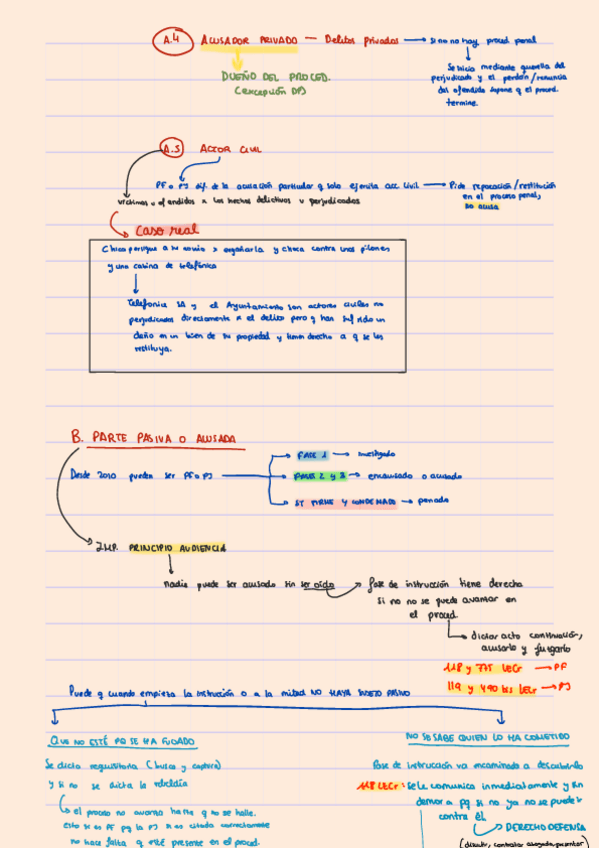 A.4 ACUSADOR PRIVADO — Delitos Privados → si no no hay proced penal
Se inicia mediante querella del
perjudicado y el perdón/renuncia
del ofendido supone q el proced.
termine.
DUEÑO DEL PROCED.
(excepción DP)
A.5 ACTOR CIVIL
PF o PJ dif. de la acusación particular q solo ejercita acc civil → Pide reparación/restitución
en el proceso penal,
no acusa
víctimas u ofendidos x los hechos delictivos u perjudicados
Caso real
Chico persigue a su novia x engañarla y choca contra unos pilones
y una cabina de telefónica
Telefónica SA y el Ayuntamiento son actores civiles no
perjudicados directamente x el delito pero q han sufrido un
daño en un bien de su propiedad y tienen derecho a q se les
restituya.
B. PARTE PASIVA O ACUSADA
Desde 2010 pueden ser PF o PJ
FASE 1 → investigado
FASE 2 y 3 → encausado o acusado
ST FIRME Y CONDENADO → penado
IMP. PRINCIPIO AUDIENCIA
Nadie puede ser acusado sin ser oído → fase de instrucción tiene derecho
si no no se puede avanzar en
el proced.
dictar acto continuación,
acusarlo y juzgarlo
118 y 775 LECr → PF
119 y 490 bis LECr → PJ
Puede q cuando empieza la instrucción o a la mitad NO HAYA SUJETO PASIVO
QUE NO ESTÉ PQ SE HA FUGADO
Se dicta requisitoria (busca y captura)
y si no se dicta la rebeldía
el proceso no avanza hasta q no se halle.
Esto si es PF pq la PJ si es citada correctamente
no hace falta q esté presente en el proced.
NO SE SABE QUIEN LO HA COMETIDO
Fase de instrucción va encaminada a descubrirlo
118 LECr: se le comunica inmediatamente y sin
demora pq si no ya no se puede ir
contra él
DERECHO DEFENSA
(discutir, contratar abogado, presentar)